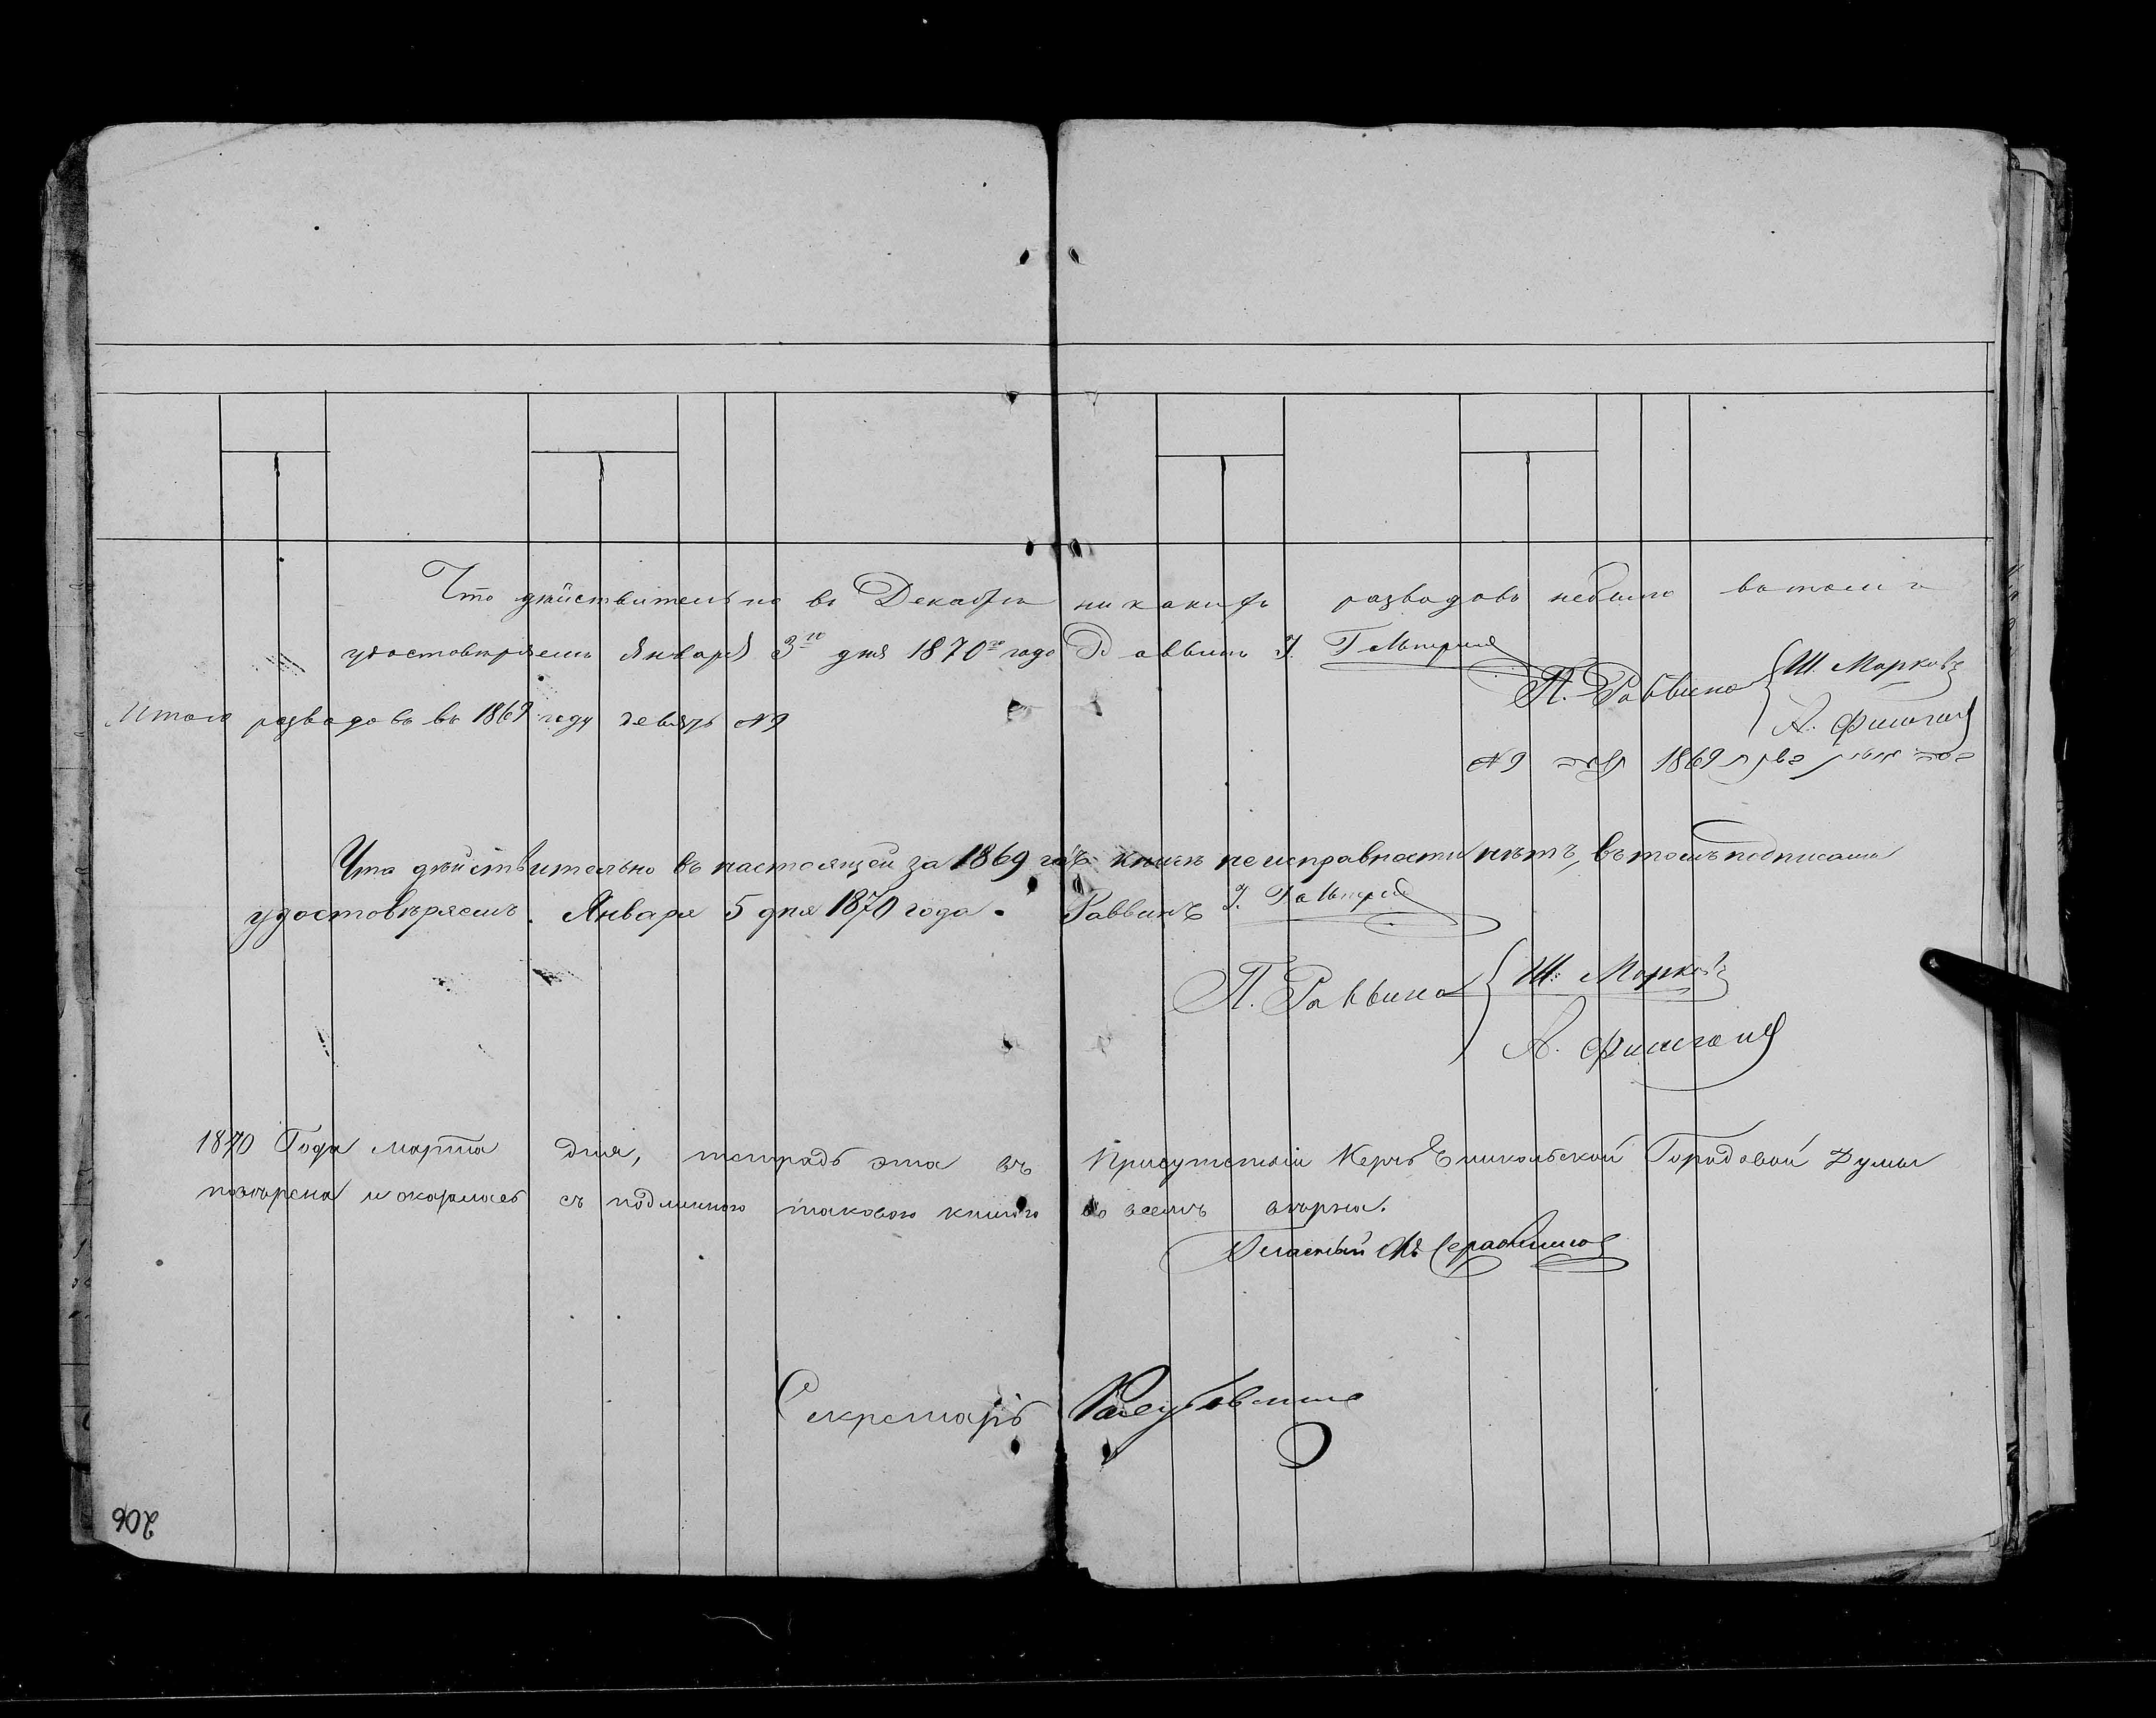 Что дѣйствительно въ Декабрѣ никакихъ разводовъ небыло въ томъ и
удостовѣряемъ Января 3го дня 1870го года Раввинъ
П. Раввина Ш. Марковъ
А.
Итого разводовъ въ 1869 году девять №9
№9 1869
Что дѣйствительно въ настоящей за 1869 годъ книгѣ неисправности нѣтъ, въ томъ подписами
удостовѣряемъ. Января 5 дня 1870 года. Раввинъ
П. Раввина Ш. Марковъ
А.
1870 Года марта дня, тетрадь эта въ Присутствіи Керчь Еникольской Городовой Думы
повѣрена и оказалась съ подлинною таковою книгою во всемъ вѣрна.
Гласный
Секретарь
206